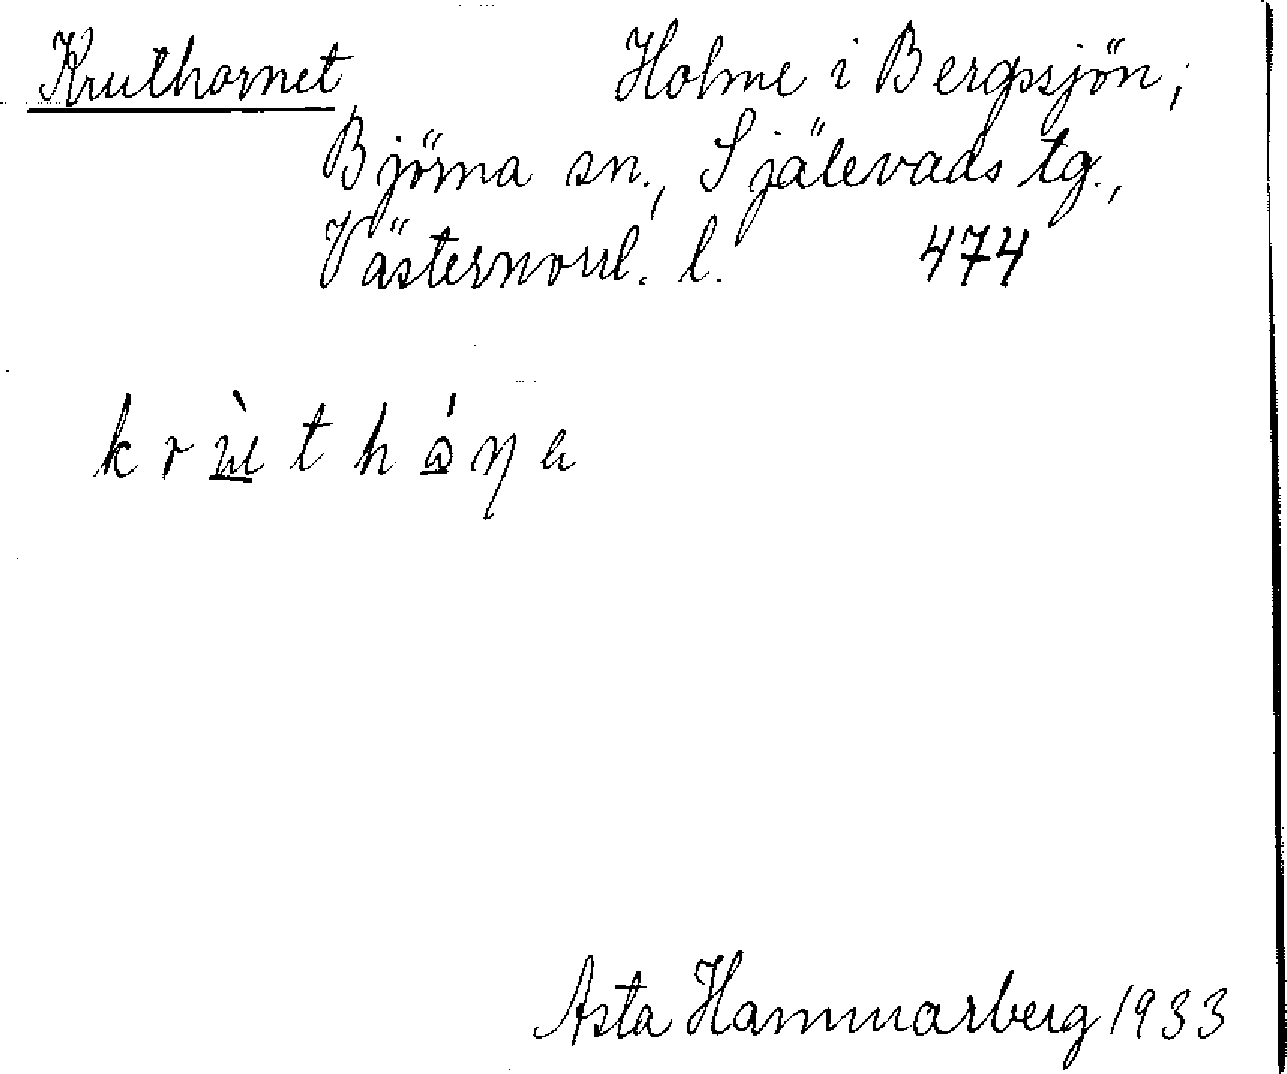 Kruthornet Holme i Bergssjön;
Björna sn., Själevads tg.,
Västernorrl. l. 474
krùthó̱ŋa
Asta Hammarberg 1933